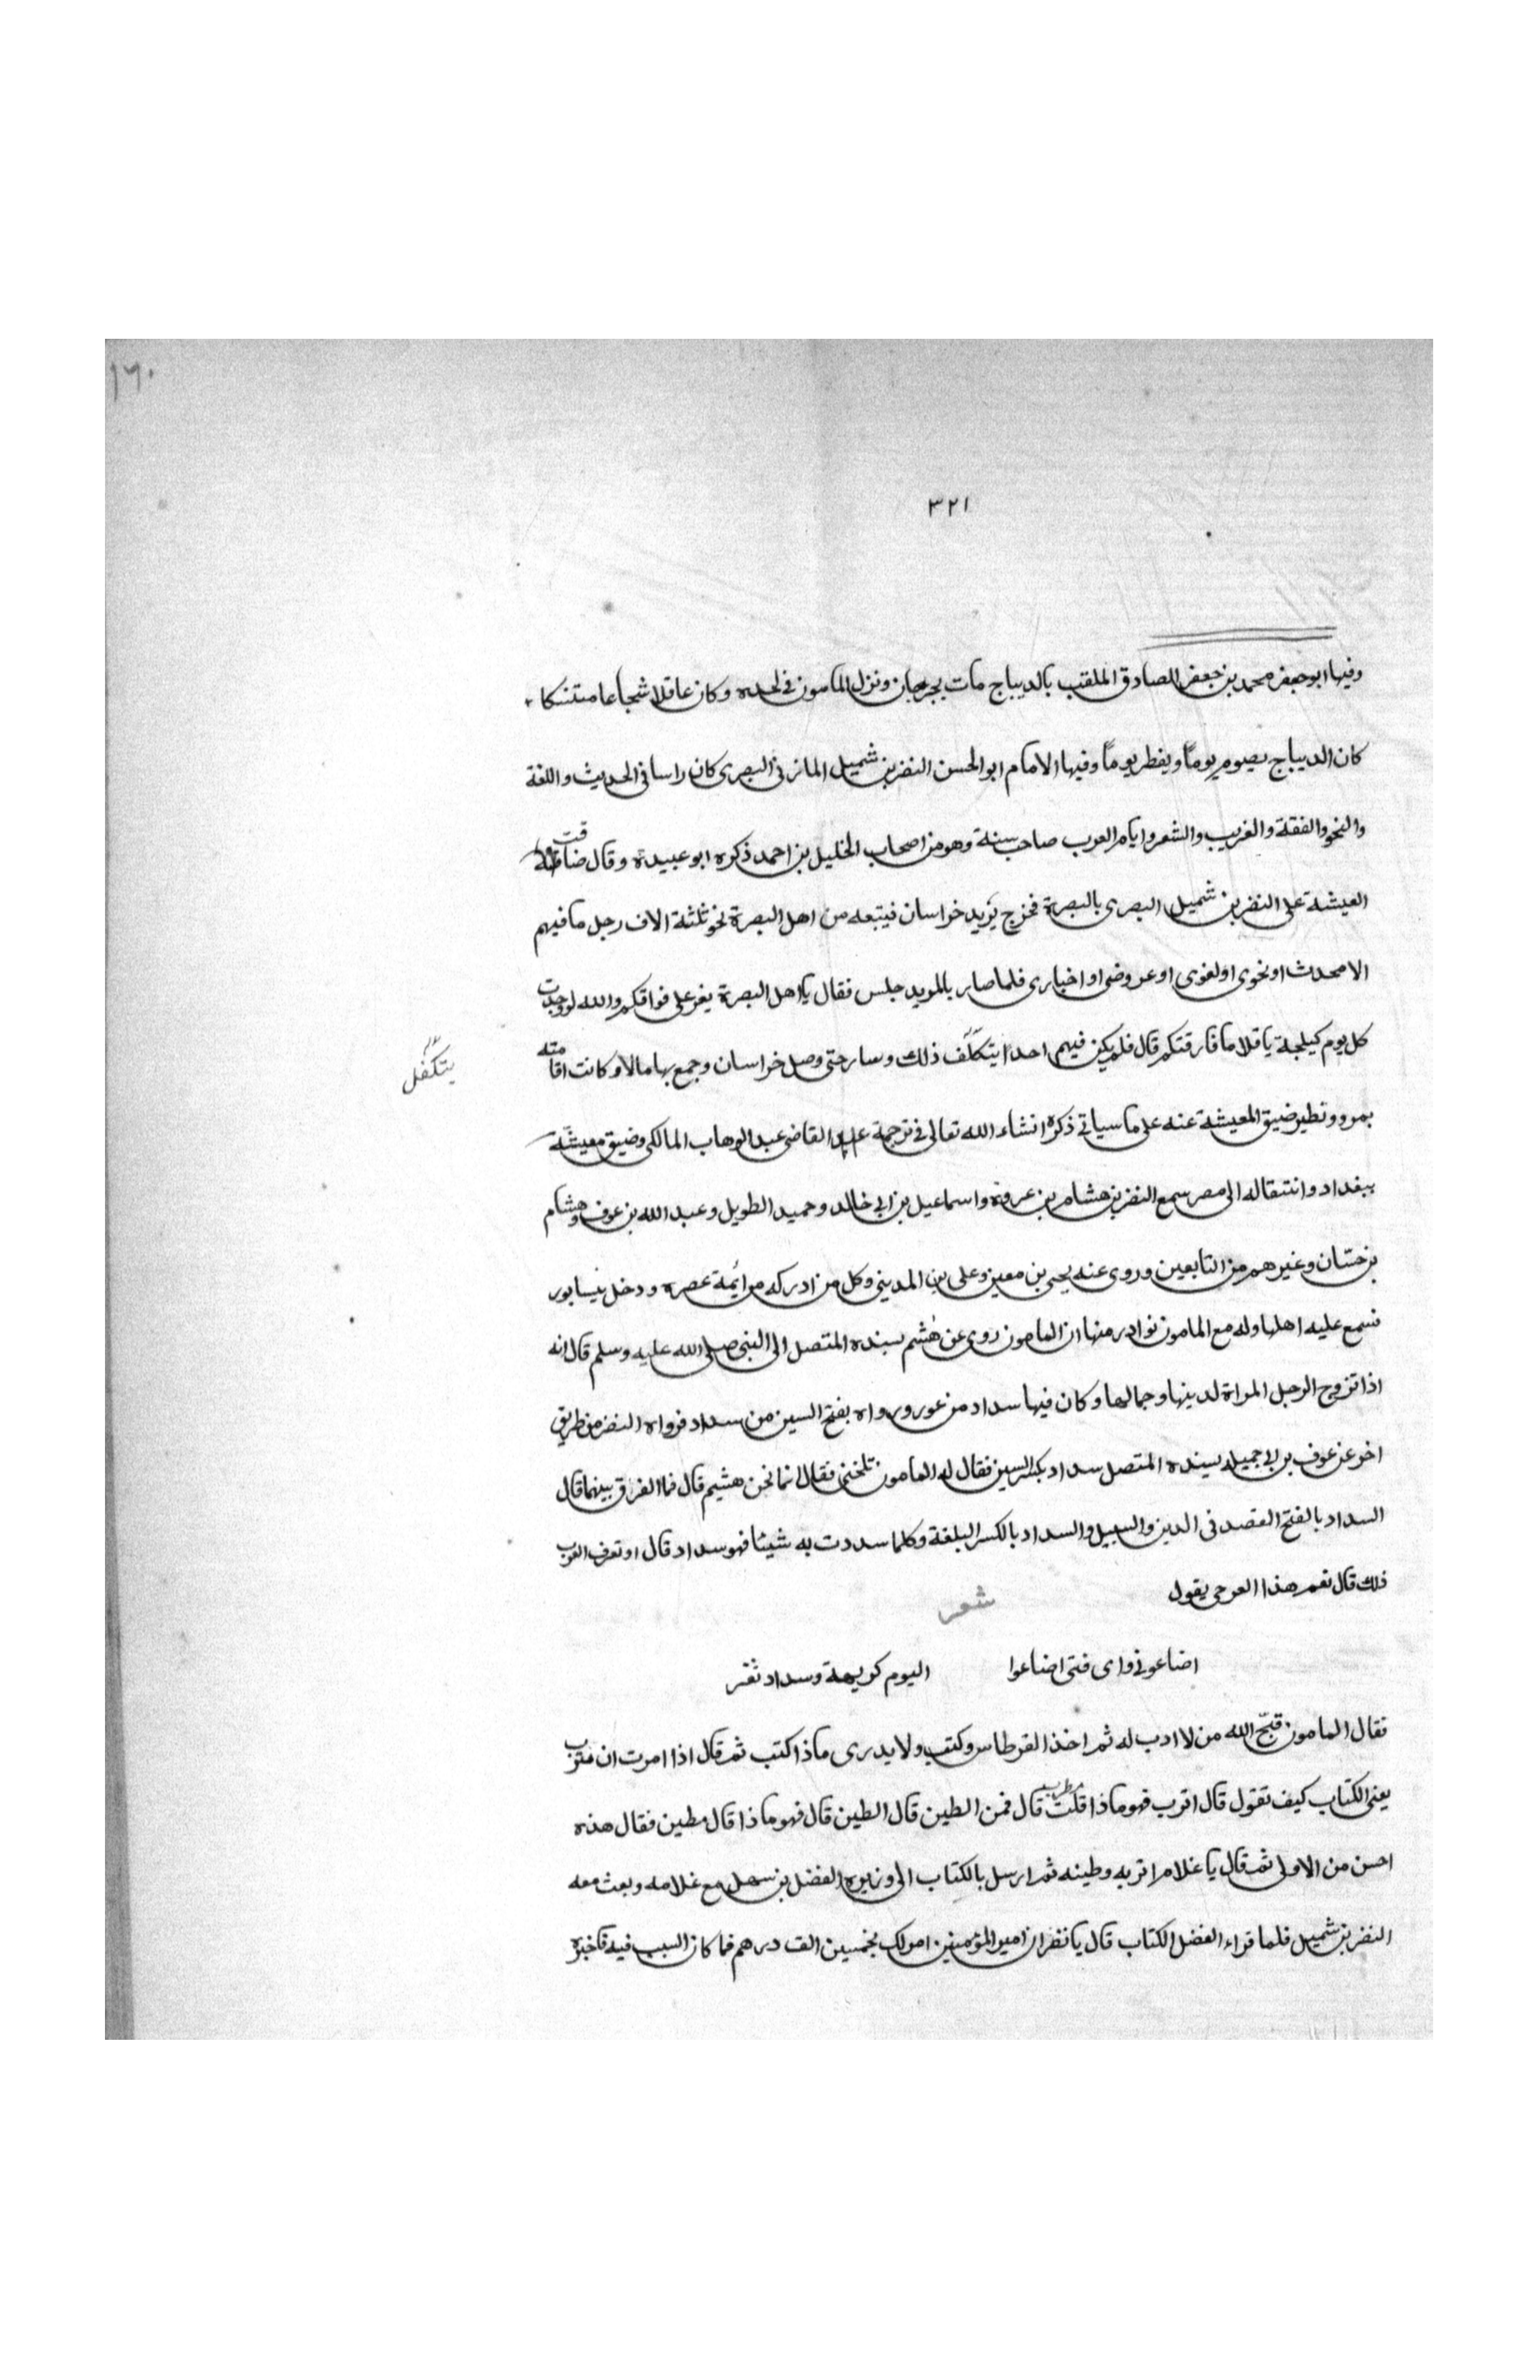 ١٦٠
٣٢١
وفيها ابو جعفر محمد بن جعفر الصادق الملقب بالديباج مات بجرجان ونزل المامون في لحده وكان عاقلا شجاعا متنسكا
كان الديباج يصوم يوماً ويفطر يوماً وفيها الامام ابو الحسن النضر بن شميل المازني البصرى كان راسا في الحديث واللغة
والنحو والفقة والغريب والشعر وايام العرب صاحب سنة وهو من اصحاب الخليل بن احمد ذكره ابو عبيدة وقال ضاقت
العيشة على النضر بن شميل البصرى بالبصرة فخرج يريد خراسان فيتبعه من اهل البصرة نحو ثلثة الاف رجل ما فيهم
الا محدث او نحوى او لغوى او عروضى او اخبارى فلما صار بالمربد جلس فقال يا اهل البصرة يعز على فراقكم والله لو وجدت
كل يوم كيلجة باقلا ما فارقتكم قال فلم يكن فيهم احداً يتكلّف ذلك وسار حتى وصل خراسان وجمع بها مالا وكانت اقامته
يتكفل
بمرو ونظير ضيق المعيشة عنه على ما سياتي ذكره انشاء الله تعالى في ترجمة القاضى عبد الوهاب المالكى وضيق معيشته
ببغداد وانتقاله الى مصر سمع النضر بن هشام بن عروة واسماعيل بن ابي خالد وحميد الطويل وعبد الله بن عوف وهشام
بن حسان وغيرهم من التابعين وروى عنه يحيى بن معين وعلى بن المدينى وكل من ادركه من ايمة عصره ودخل نيسابور
فسمع عليه اهلها وله مع المامون نوادر منها ان المامون روى عن هشم بسنده المتصل الى النبى صلى الله عليه وسلم قال انه
اذا تزوج الرجل المراة لدينها وجمالها وكان فيها سداد من عور ورواه بفتح السين من سداد فرواه النضر من طريق
اخر عن عوف بن ابي جميلة بسنده المتصل سداد بكسر السين فقال له المامون تلحننى فقال انما لحن هشيم قال فما الفرق بينهما قال
السداد بالفتح القصد فى الدين والسبيل والسداد بالكسر البلغة وكلما سددت به شيئا فهو سداد قال او تعرف العرب
ذلك قال نعم هذا العرجى يقول
شعر
اضاعونى واى فتى اضاعوا اليوم كريهة وسداد ثغر
فقال المامون قبّح الله من لا ادب له ثم اخذ القرطاس وكتب ولا يدرى ماذا اكتب ثم قال اذا امرت ان تترب
يعنى الكتاب كيف تقول قال اترب فهو ماذا قلت مطرب قال فمن الطين قال الطين قال فهو ماذا قال مطين فقال هذه
احسن من الاولى ثم قال يا غلام اتربه وطينه ثم ارسل بالكتاب الى وزيره الفضل بن سهل مع غلامه وبعث معه
النضر بن شميل فلما قراء الفضل الكتاب قال يا نضر ان امير المؤمنين امر لك بخمسين الف درهم فما كان السبب فيه فاخبره